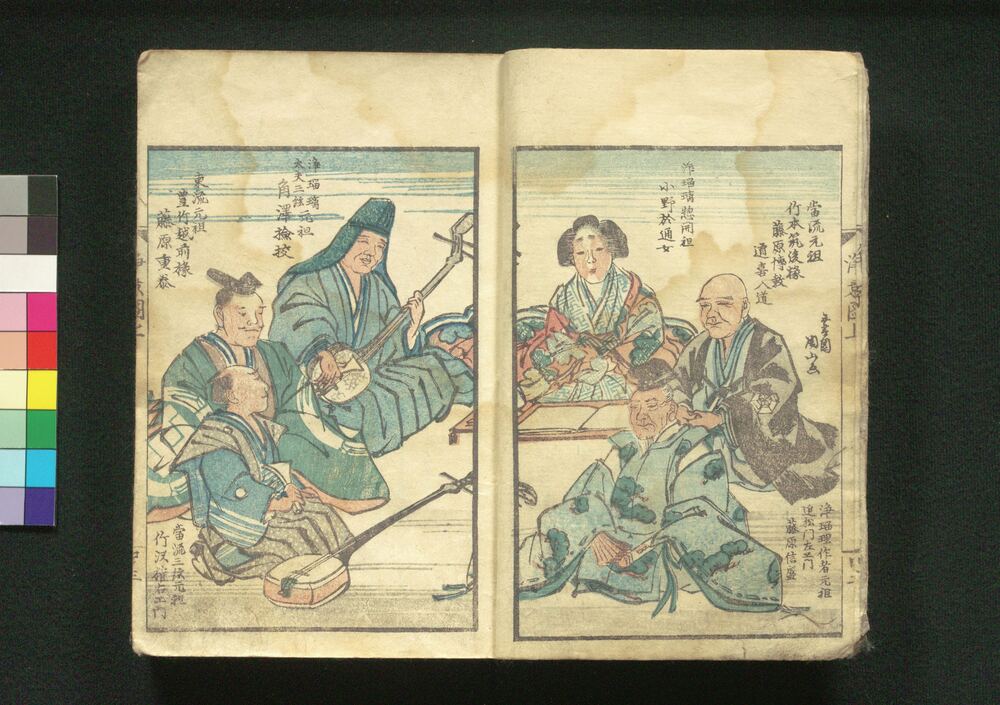 浄瑠璃惣開祖
小野於通女
當流元祖
竹本筑後掾
藤原博教
道喜入道
浄瑠理作者元祖
近松门左エ門
藤原信盛
浄瑠璃元祖
太夫三弦
角澤撿挍
東流元祖
豊竹越前掾
藤原重泰
當流三弦元祖
竹沢権右エ门